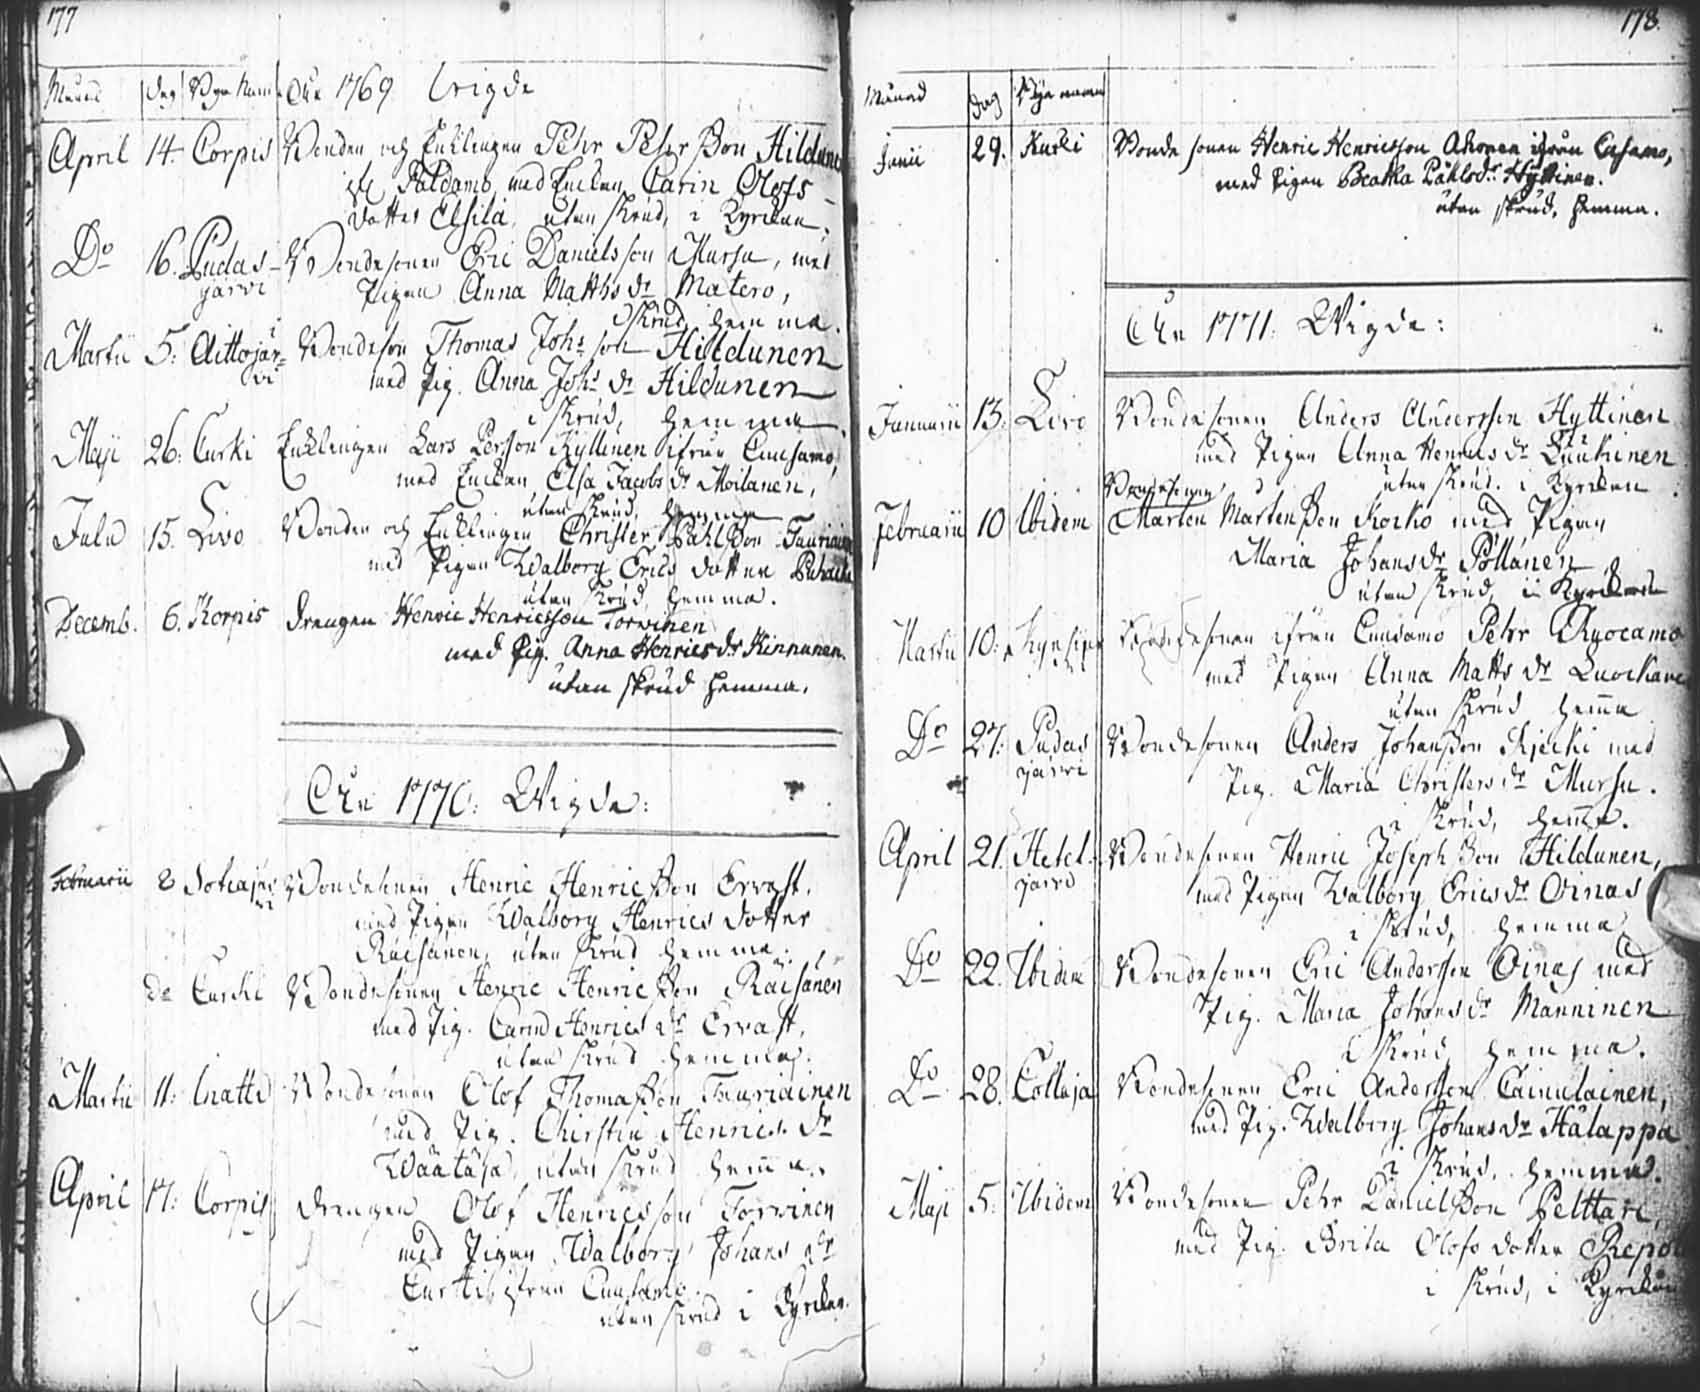 177
Månad dag Bya Namn Åhr 1769 Wigde
April 14. Corpis Bonden och Enklingen Pehr Pehrsson Hildunen
Paldamo med Enkan Carin Olofs
dotter Elsilä, utan skrud, i Kyrckan.
Do 16. Pudas- Bondesonen Eric Danielsson Mursu, med
järvi Pigan Anna Matts dr Matero,
i Skrud hemma.
Martii 5. Aittojär- Bondeson Thomas Johs son Hildunen
vi med Pig. Anna Johs dr Hildunen
i Skrud, hemma.
Maji 26. Curki Enklingen Lars Persson Kyllinen ifrån Cuusamo,
med Enkan Elsa Jacobs dr Moilanen,
utan skrud, hemma
Julii 15. Livo Bonden och Enklingen Christer Påhlsson Tauriainen
med Pigan Walborg Erics dotter
utan skrud hemma.
Decemb. 6. Korpis drengen Henric Henricsson Torvinen
med Pig. Anna Henrics dr Kinnunen.
utan skrud hemma.
Åhr 1770. Wigde:
Februarii 2 Sotkajär Bondesonen Henric Henricsson Ervast,
vi med Pigan Walborg Henrics dotter
Räisänen, utan skrud hemma.
do Curcki Bondesonen Henric Henricsson Räisänen
med Pig. Carin Henrics dr Ervast,
utan skrud hemma.
Martii 11. Inatti Bondesonen Olof Thomasson Tauriainen
med Pig. Chirstin Henrics dr
Wäätäjä, utan skrud hemma.
April 17. Corpis drengen Olof Henricsson Torvinen
med Pigan Walborg Johans dr
Curtti ifrån Cuusamo
utan skrud i Kyrckan.
178.
Månad dag Bya namn
Junii 29. Kurki Bonde sonen Henric Henricsson Ahonen ifrån Cusamo,
med pigan Beatha Påhlsdr Hyttinen.
utan skrud, hemma.
Åhr 1771. Wigde:
Januarii 13. Livo Bondesonen Anders Andersson Hyttinen
med Pigan Anna Henrics dr Luukinen
utan skrud. i Kyrckan
Bondesonen
Februarii 10 Ibidem Mårten Mårtensson Koiko med Pigan
Maria Johansdr Pöllänen
utan skrud, i Kyrckan
Martii 10. Bondesonen ifrån Cuusamo Pehr
med Pigan Anna Matts dr
utan skrud hemma
Do 27. Pudas Bondesonen Anders Johansson med
järvi Pig. Maria Christers dr Mursu.
i skrud, hemma.
April 21. Hetet- Bondesonen Henric Josephsson Hildunen,
järvi med Pigan Walborg Ericsdr Oinas
i skrud, hemma
Do 22. Ibidem Bondesonen Eric Andersson Oinas med
Pig. Maria Johans dr Manninen
i skrud hemma.
Do 28. Collaja Bondesonen Eric Andersson Cainulainen,
med Pig. Walborg Johans dr Hålappa
i skrud, hemma.
Maji 5. Ibidem Bondesonen Pehr Danielsson Pelttari,
med Pig. Brita Olofs dotter
i skrud, i Kyrckan